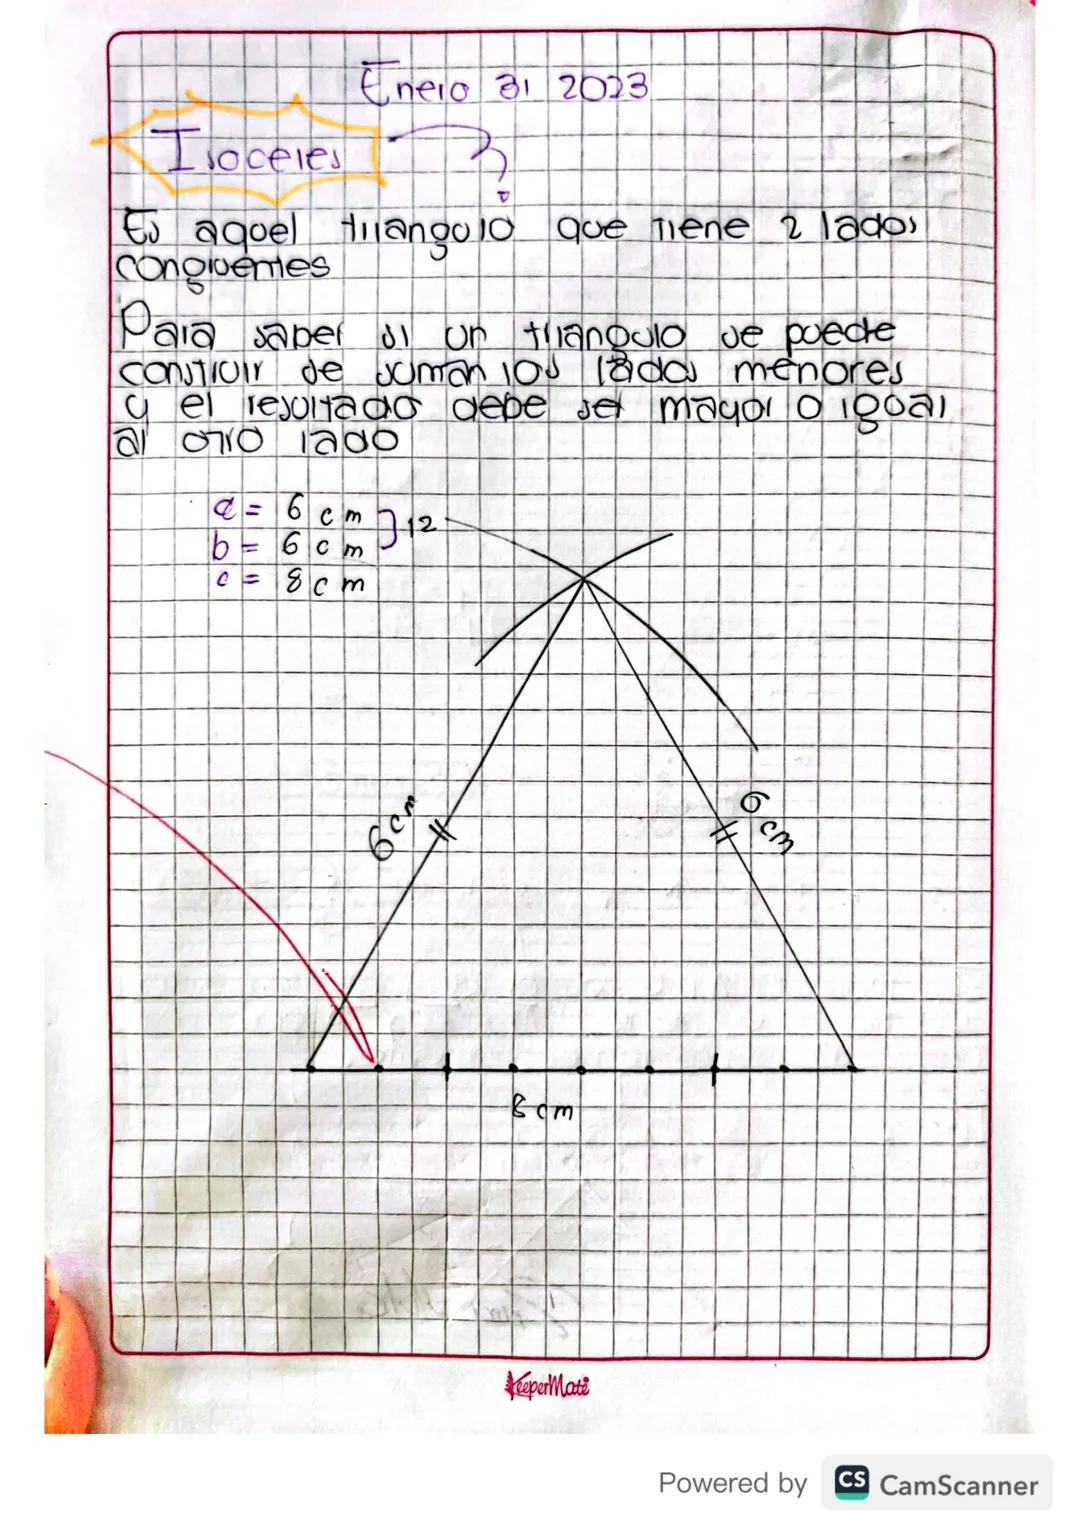 Enero 31 2023
Isoceles
?
Es aquel triangulo que tiene 2 lados
congruentes
Para saber si un triangulo se puede
construir se suman los lados menores
y el resultado debe ser mayor o igual
al otro lado
a = 6 cm
b = 6 cm
} 12
c = 8 cm
6 cm
6 cm
8 cm
KeeperMate
Powered by CS CamScanner